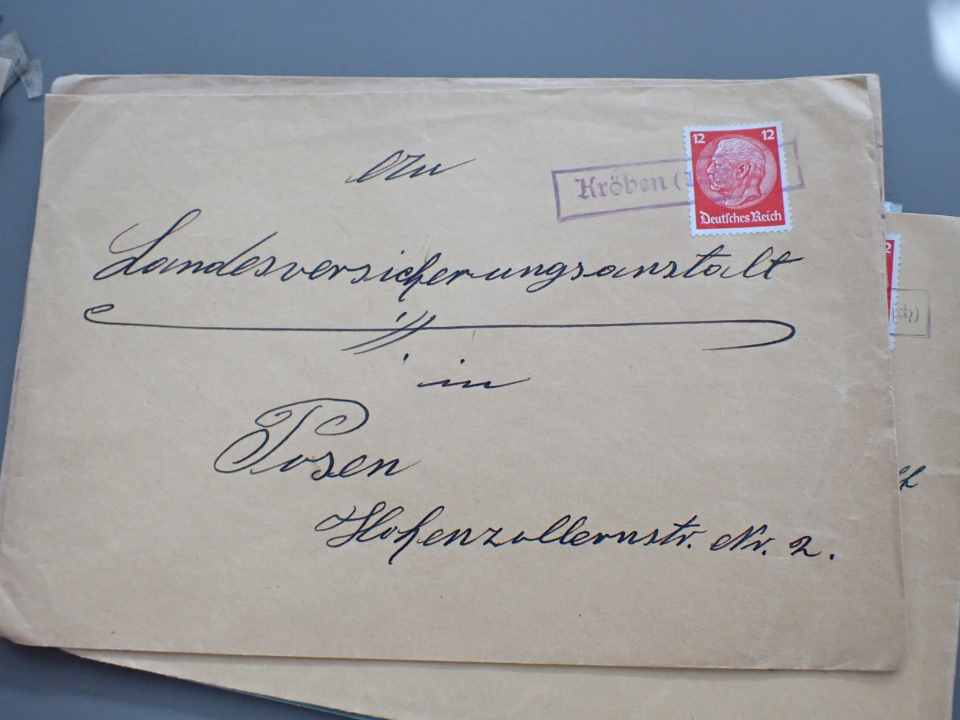 An
Kröben (
12 12
Deutsches Reich
Landesversicherungsanstalt
in
Posen
Hohenzollernstr. Nr. 2.